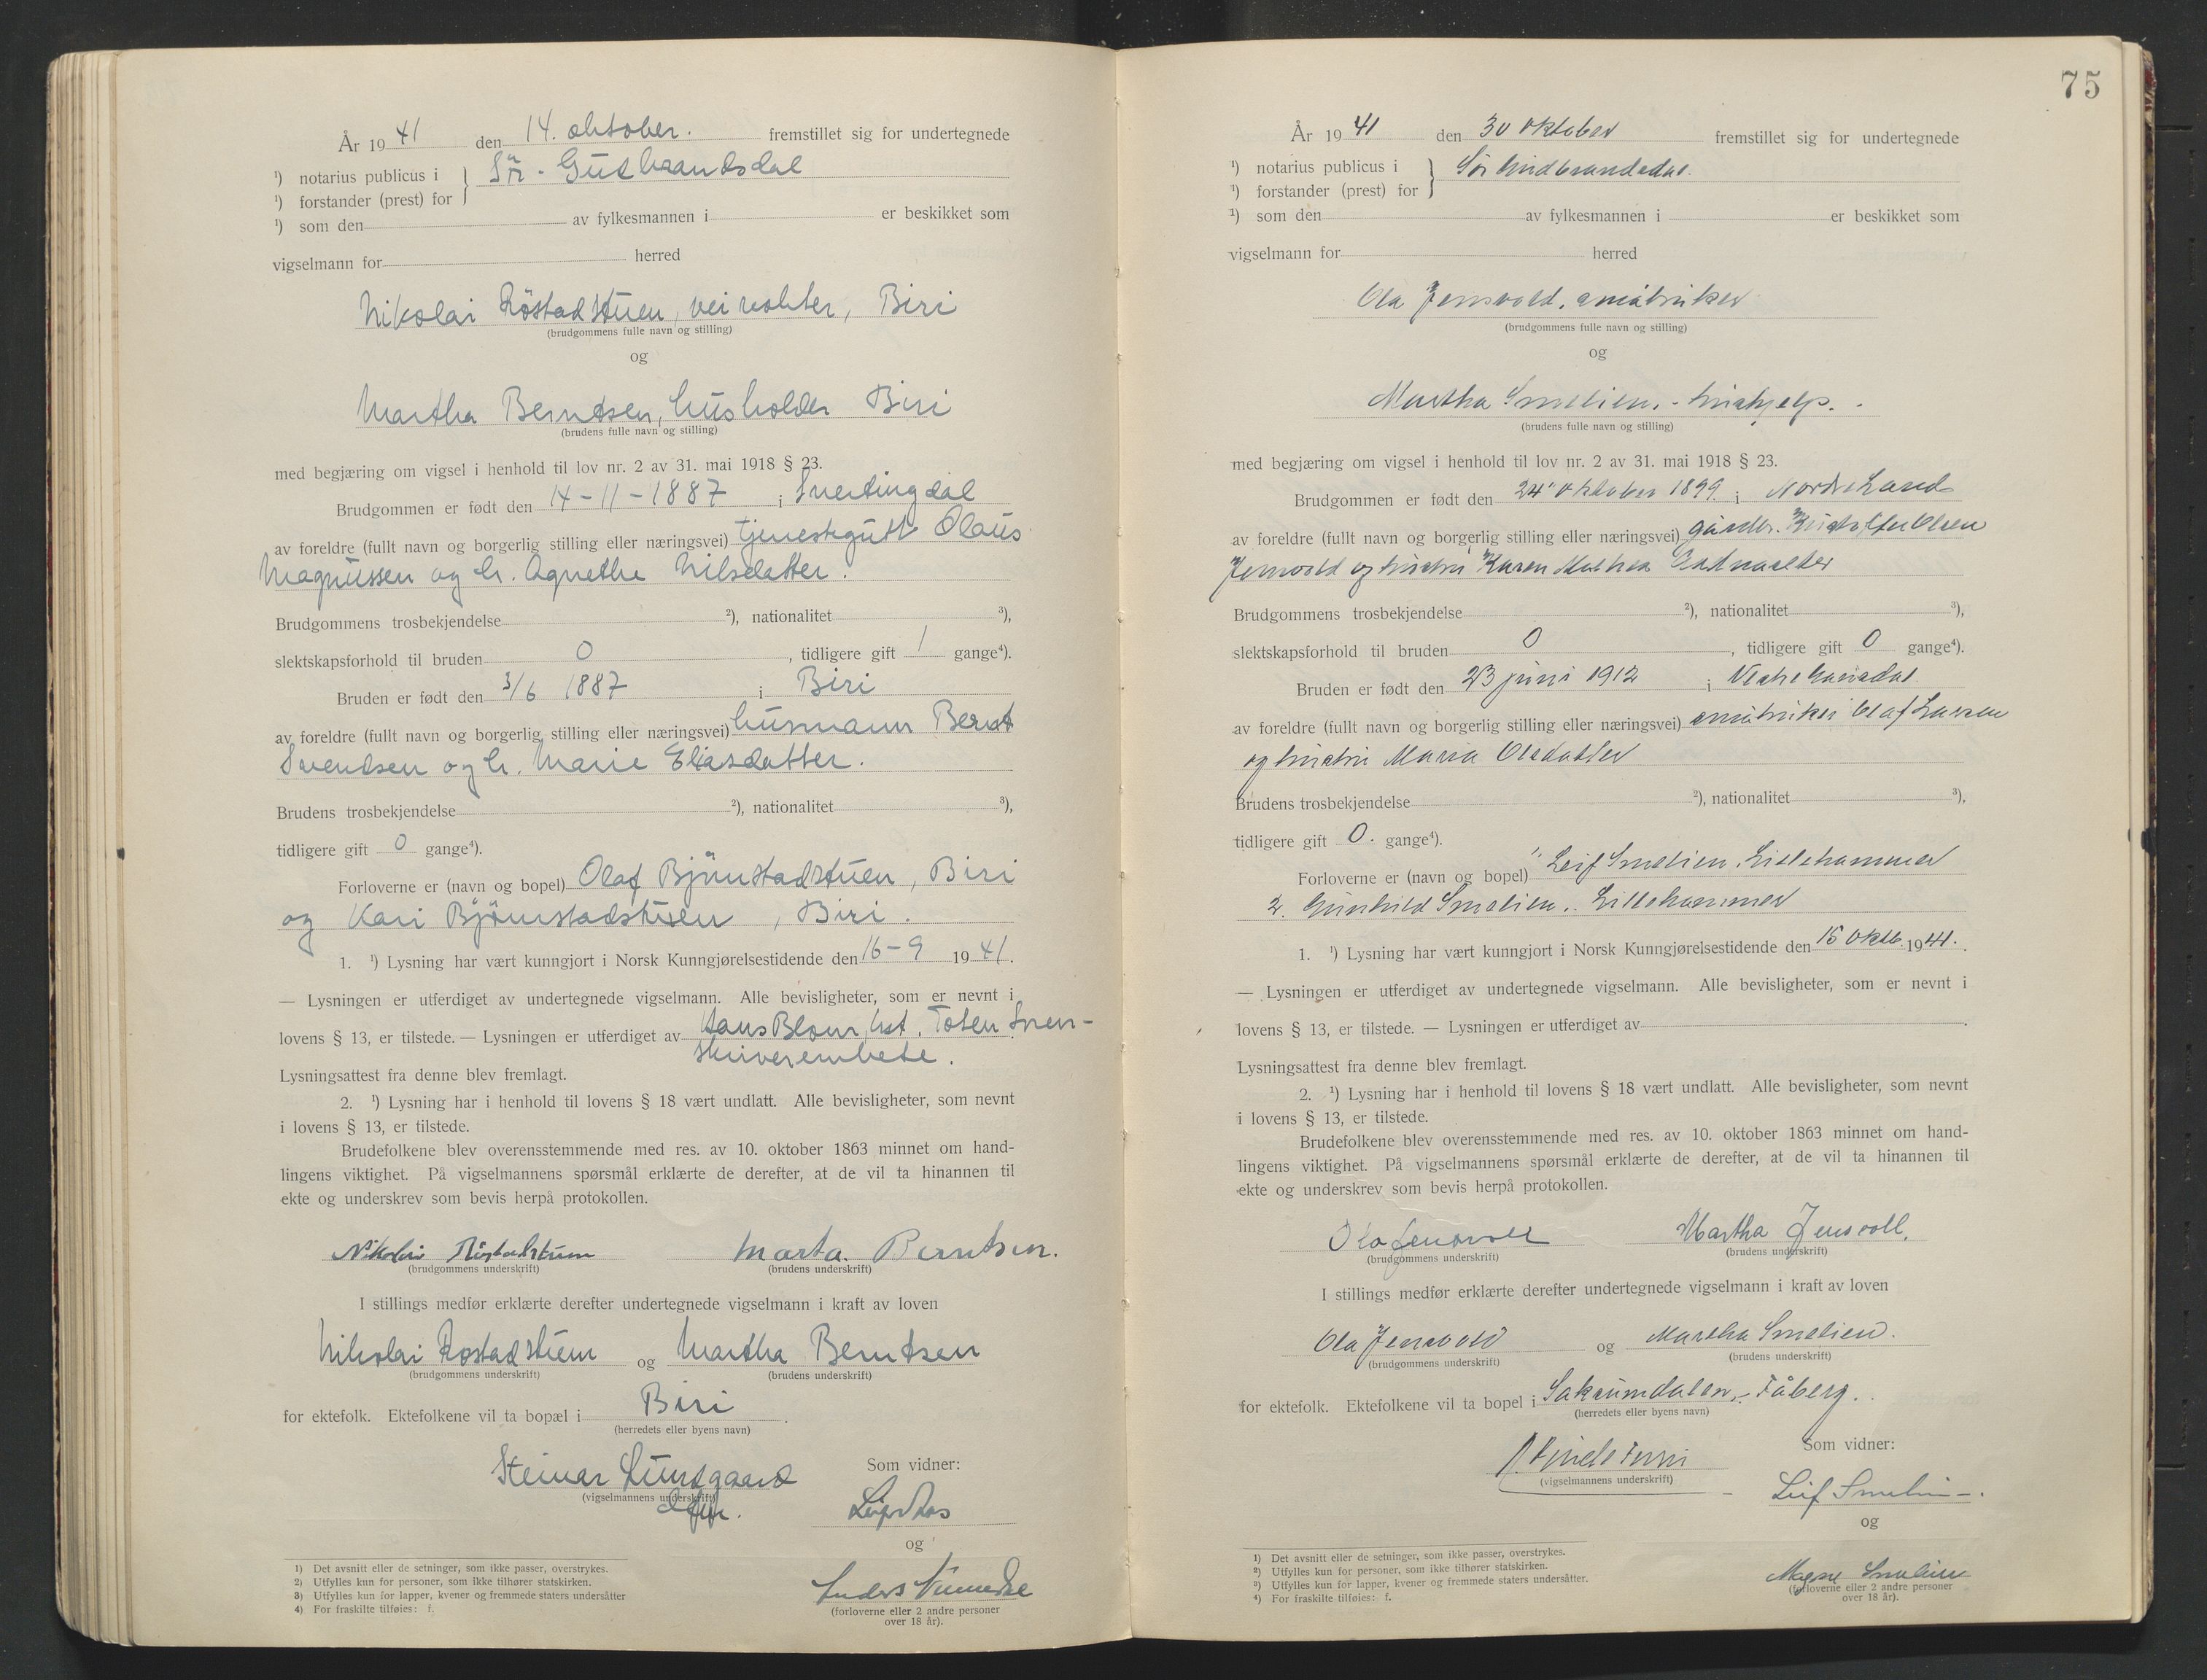 År 1941 den 14. oktober. fremstillet sig for undertegnede
¹) notarius publicus i } Sör-Gudbrandsdal
¹) forstander (prest) for
¹) som den av fylkesmannen i er beskikket som
vigselmann for herred
Nikolai Röstadstuen, veivokter, Biri
(brudgommens fulle navn og stilling)
og
Martha Berndsen, husholder Biri
(brudens fulle navn og stilling)
med begjæring om vigsel i henhold til lov nr. 2 av 31. mai 1918 § 23.
Brudgommen er født den 14-11-1887 i Snertingdal
av foreldre (fullt navn og borgerlig stilling eller næringsvei) tjenestegutt Olaus
Magnussen og h. Agnethe Nilsdatter.
Brudgommens trosbekjendelse ²), nationalitet ³),
slektskapsforhold til bruden 0, tidligere gift 1 gange⁴).
Bruden er født den 3/6 1887 i Biri
av foreldre (fullt navn og borgerlig stilling eller næringsvei) husmann Bernt
Svendsen og h. Marie Eliasdatter.
Brudens trosbekjendelse ²), nationalitet ³),
tidligere gift 0 gange⁴).
Forloverne er (navn og bopel) Olaf Björnstadstuen, Biri
og Kari Björnstadstuen, Biri.
1. ¹) Lysning har vært kunngjort i Norsk Kunngjørelsestidende den 16-9 1941.
— Lysningen er utferdiget av undertegnede vigselmann. Alle bevisligheter, som er nevnt i
lovens § 13, er tilstede. — Lysningen er utferdiget av Hans Blom, kst. Toten Soren-
skriverembete.
Lysningsattest fra denne blev fremlagt.
2. ¹) Lysning har i henhold til lovens § 18 vært undlatt. Alle bevisligheter, som nevnt
i lovens § 13, er tilstede.
Brudefolkene blev overensstemmende med res. av 10. oktober 1863 minnet om hand-
lingens viktighet. På vigselmannens spørsmål erklærte de derefter, at de vil ta hinannen til
ekte og underskrev som bevis herpå protokollen.
Nikolai Röstadstuen Marta Berntsen.
(brudgommens underskrift) (brudens underskrift)
I stillings medfør erklærte derefter undertegnede vigselmann i kraft av loven
Nikolai Rostadstuen og Martha Berndsen
(brudgommens underskrift) (brudens underskrift)
for ektefolk. Ektefolkene vil ta bopæl i Biri.
(herredets eller byens navn)
Steinar Lundgaard
(vigselmannens underskrift)
Som vidner:
Leif
og
Anders
(forloverne eller 2 andre personer
over 18 år).
1) Det avsnitt eller de setninger, som ikke passer, overstrykes.
2) Utfylles kun for personer, som ikke tilhører statskirken.
3) Utfylles kun for lapper, kvener og fremmede staters undersåtter
4) For fraskilte tilføies: f.
75
År 1941 den 30 oktober fremstillet sig for undertegnede
¹) notarius publicus i } Sör Gudbrandsdal.
¹) forstander (prest) for
¹) som den av fylkesmannen i er beskikket som
vigselmann for herred
Ola Jensvold, småbruker
(brudgommens fulle navn og stilling)
og
Martha Smelien, - hushjelp.
(brudens fulle navn og stilling)
med begjæring om vigsel i henhold til lov nr. 2 av 31. mai 1918 § 23.
Brudgommen er født den 24' oktober 1899 i Nordre Land
av foreldre (fullt navn og borgerlig stilling eller næringsvei) gårdbr. Kristoffer Olsen
Jensvold og hustru Karen Mathea
Brudgommens trosbekjendelse ²), nationalitet ³),
slektskapsforhold til bruden 0, tidligere gift 0 gange⁴).
Bruden er født den 23 juni 1912 i Vestre Gausdal
av foreldre (fullt navn og borgerlig stilling eller næringsvei) småbruker Olaf Larsen
og hustru Maria Olsdatter
Brudens trosbekjendelse ²), nationalitet ³),
tidligere gift 0. gange⁴).
Forloverne er (navn og bopel) 1. Leif Smelien, Lillehammer
2. Gunhild Smelien, Lillehammer
1. ¹) Lysning har vært kunngjort i Norsk Kunngjørelsestidende den 15 oktb. 1941.
— Lysningen er utferdiget av undertegnede vigselmann. Alle bevisligheter, som er nevnt i
lovens § 13, er tilstede. — Lysningen er utferdiget av
Lysningsattest fra denne blev fremlagt.
2. ¹) Lysning har i henhold til lovens § 18 vært undlatt. Alle bevisligheter, som nevnt
i lovens § 13, er tilstede.
Brudefolkene blev overensstemmende med res. av 10. oktober 1863 minnet om hand-
lingens viktighet. På vigselmannens spørsmål erklærte de derefter, at de vil ta hinannen til
ekte og underskrev som bevis herpå protokollen.
Ola Jensvoll Martha Jensvoll.
(brudgommens underskrift) (brudens underskrift)
I stillings medfør erklærte derefter undertegnede vigselmann i kraft av loven
Ola Jensvold og Martha Smelien.
(brudgommens underskrift) (brudens underskrift)
for ektefolk. Ektefolkene vil ta bopel i Saksumdalen, - Fåberg.
(herredets eller byens navn)
(vigselmannens underskrift)
Som vidner:
Leif Smelien
og
Magne Smelien
(forloverne eller 2 andre personer
over 18 år).
1) Det avsnitt eller de setninger, som ikke passer, overstrykes.
2) Utfylles kun for personer, som ikke tilhører statskirken.
3) Utfylles kun for lapper, kvener og fremmede staters undersåtter.
4) For fraskilte tilføies: f.